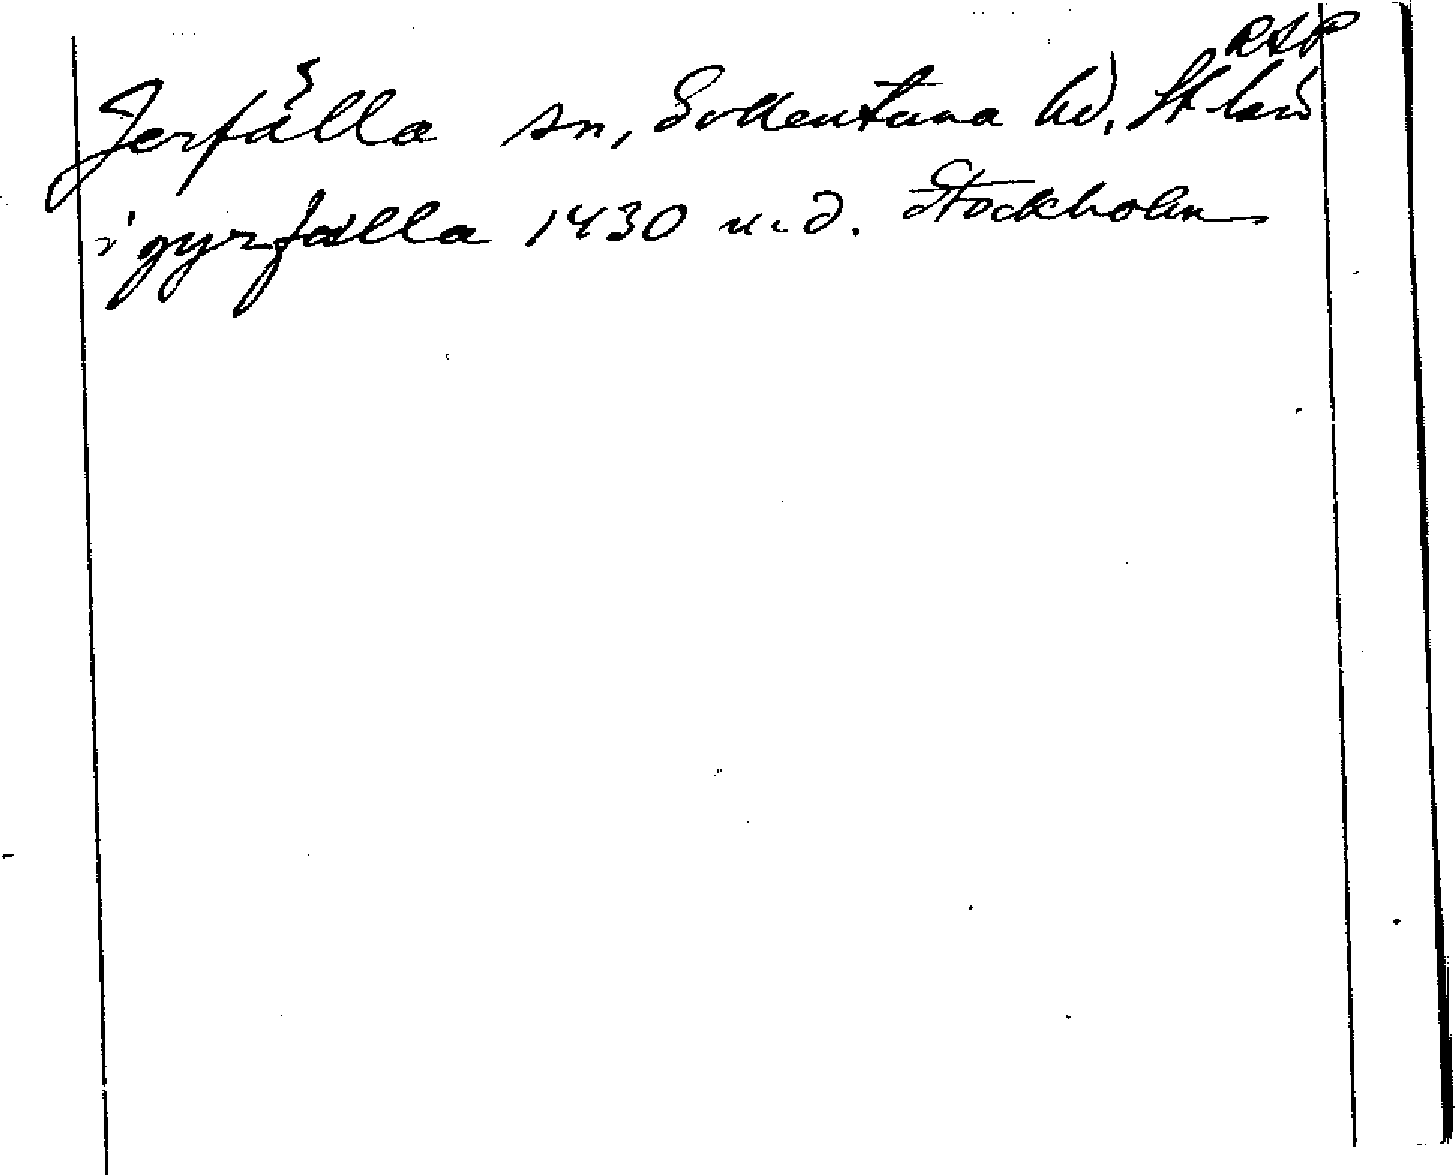 RAP
Jerfälla sn, Sollentuna hd, St. län
i gyrfalla 1430 u.d. Stockholm